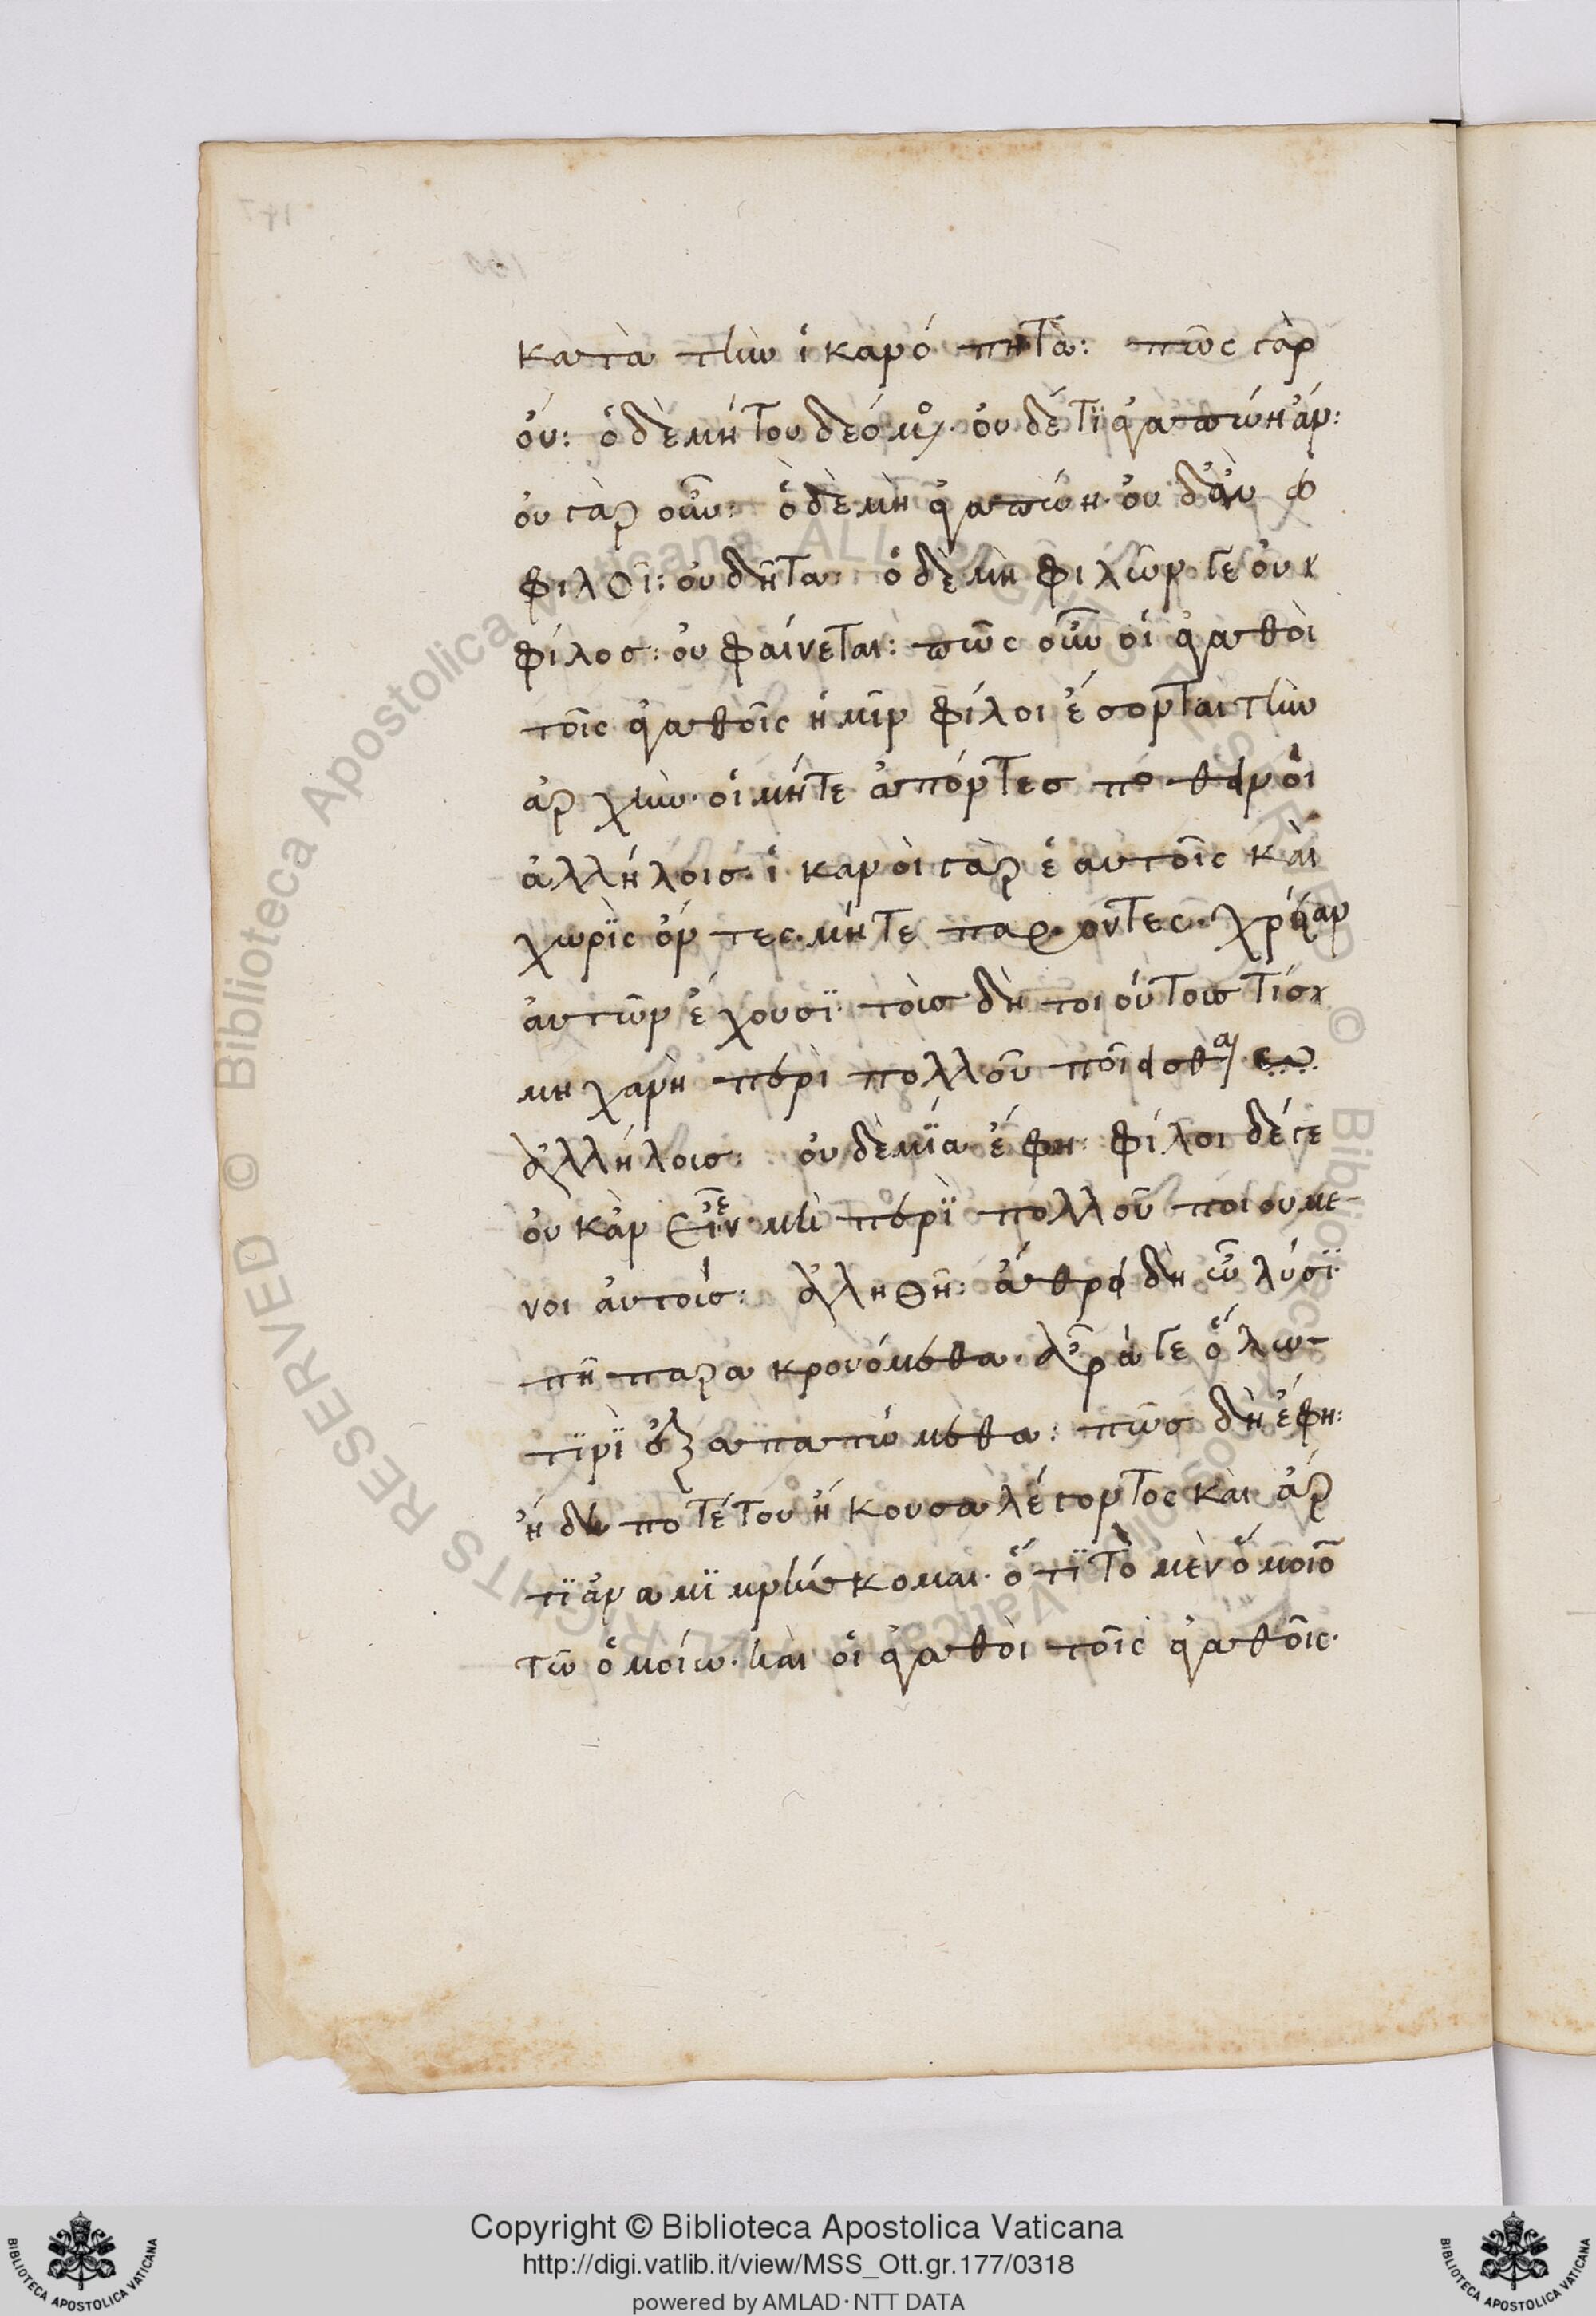 κατὰ τὴν ἱκανότητα: πῶς γὰρ
οὔ: ὁ δὲ μή του δεόμενος. οὐδέ τι ἀγαπώη ἄν:
οὐ γὰρ οὖν: ὁ δὲ μὴ ἀγαπώη. οὐδ' ἂν
φιλοῖ: οὐ δῆτα: ὁ δὲ μὴ φιλῶν γε οὐ
φίλος: οὐ φαίνεται: πῶς οὖν οἱ ἀγαθοὶ
τοῖς ἀγαθοῖς ἡμῖν φίλοι ἔσονται τὴν
ἀρχὴν. οἳ μήτε ἀπόντες ποθεινοὶ
ἀλλήλοις. ἱκανοὶ γὰρ ἑαυτοῖς καὶ
χωρὶς ὄντες. μήτε παρόντες. χρείαν
αὐτῶν ἔχουσι. τοὺς δὴ τοιούτους τίς
μηχανὴ περὶ πολλοῦ ποιεῖσθαι
ἀλλήλους: οὐδεμία ἔφη: φίλοι δέ γε
οὐκ ἂν εἶεν. μὴ περὶ πολλοῦ ποιούμε-
νοι αὑτούς: ἀληθῆ: ἄθρει δὴ ὦ λύσι.
πῇ παρακρουόμεθα. ἆρά γε ὅλω
τινὶ ἐξαπατώμεθα: πῶς δὴ ἔφη:
ἤδη ποτέ του ἤκουσα λέγοντος καὶ ἄρ
τι ἀναμιμνήσκομαι. ὅτι τὸ μὲν ὅμοιο
τῶ ὁμοίω. καὶ οἱ ἀγαθοὶ τοῖς ἀγαθοῖς.
Copyright © Biblioteca Apostolica Vaticana
http://digi.vatlib.it/view/MSS_Ott.gr.177/0318
powered by AMLAD·NTT DATA